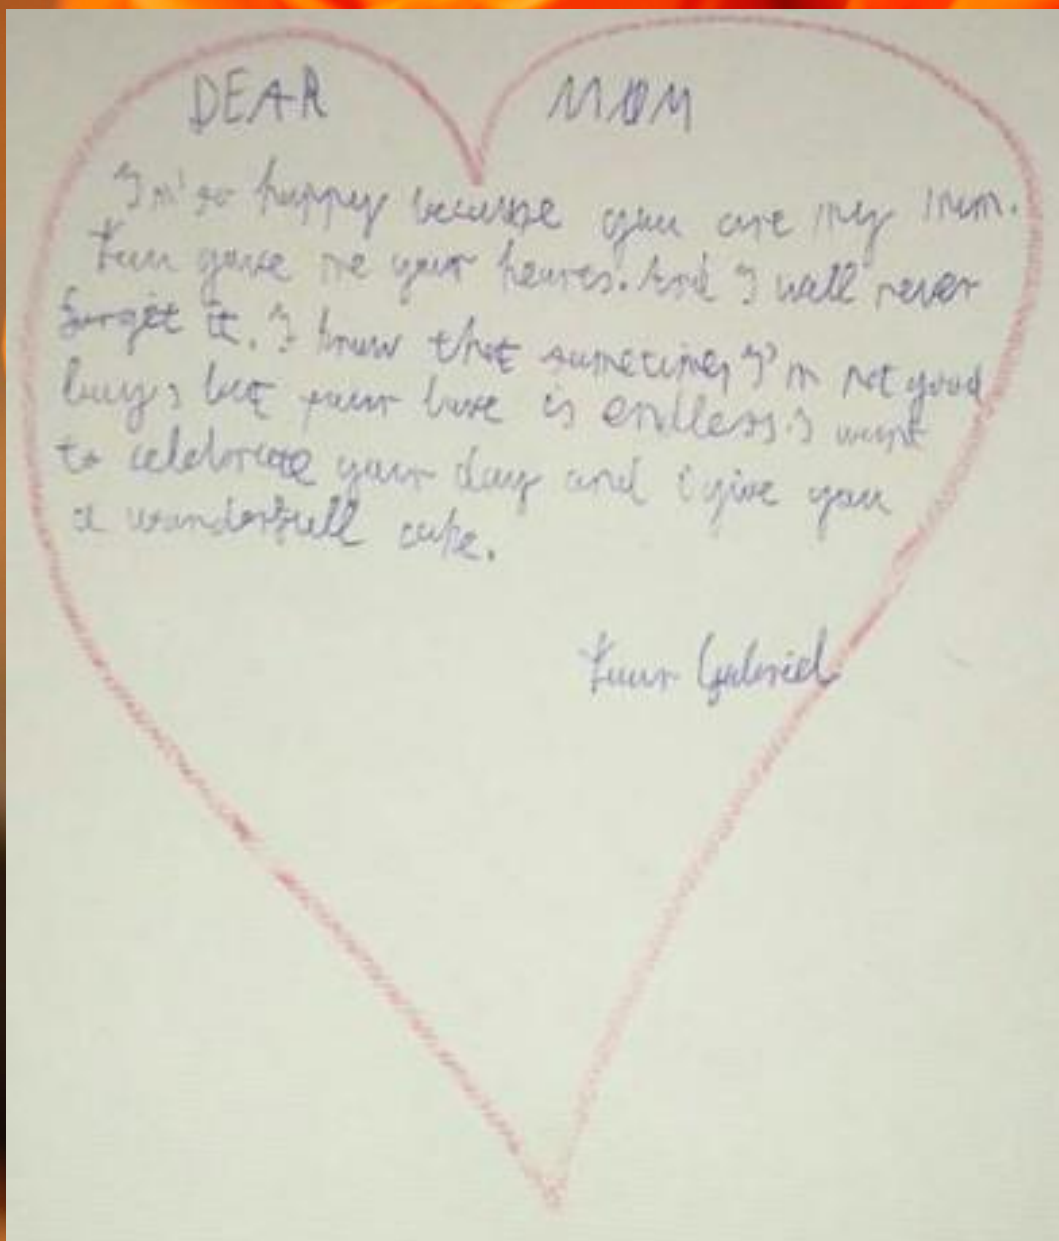 DEAR MOM
I'm so happy because you are my mum.
You gave me your hearts. And I well never
forget it. I know that sometimes I'm not good
boys, but your love is endless. I want
to celebrate your day and i give you
a wonderfull cake.
Your Gabriel